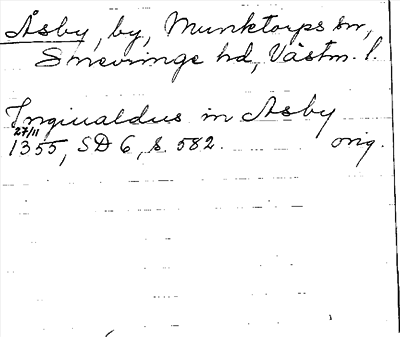 Åsby, by, Munktorps sn,
Snevringe hd, Västm. l.
Ingiualdus in Asby
27/11
1355, SD 6, s. 582. orig.